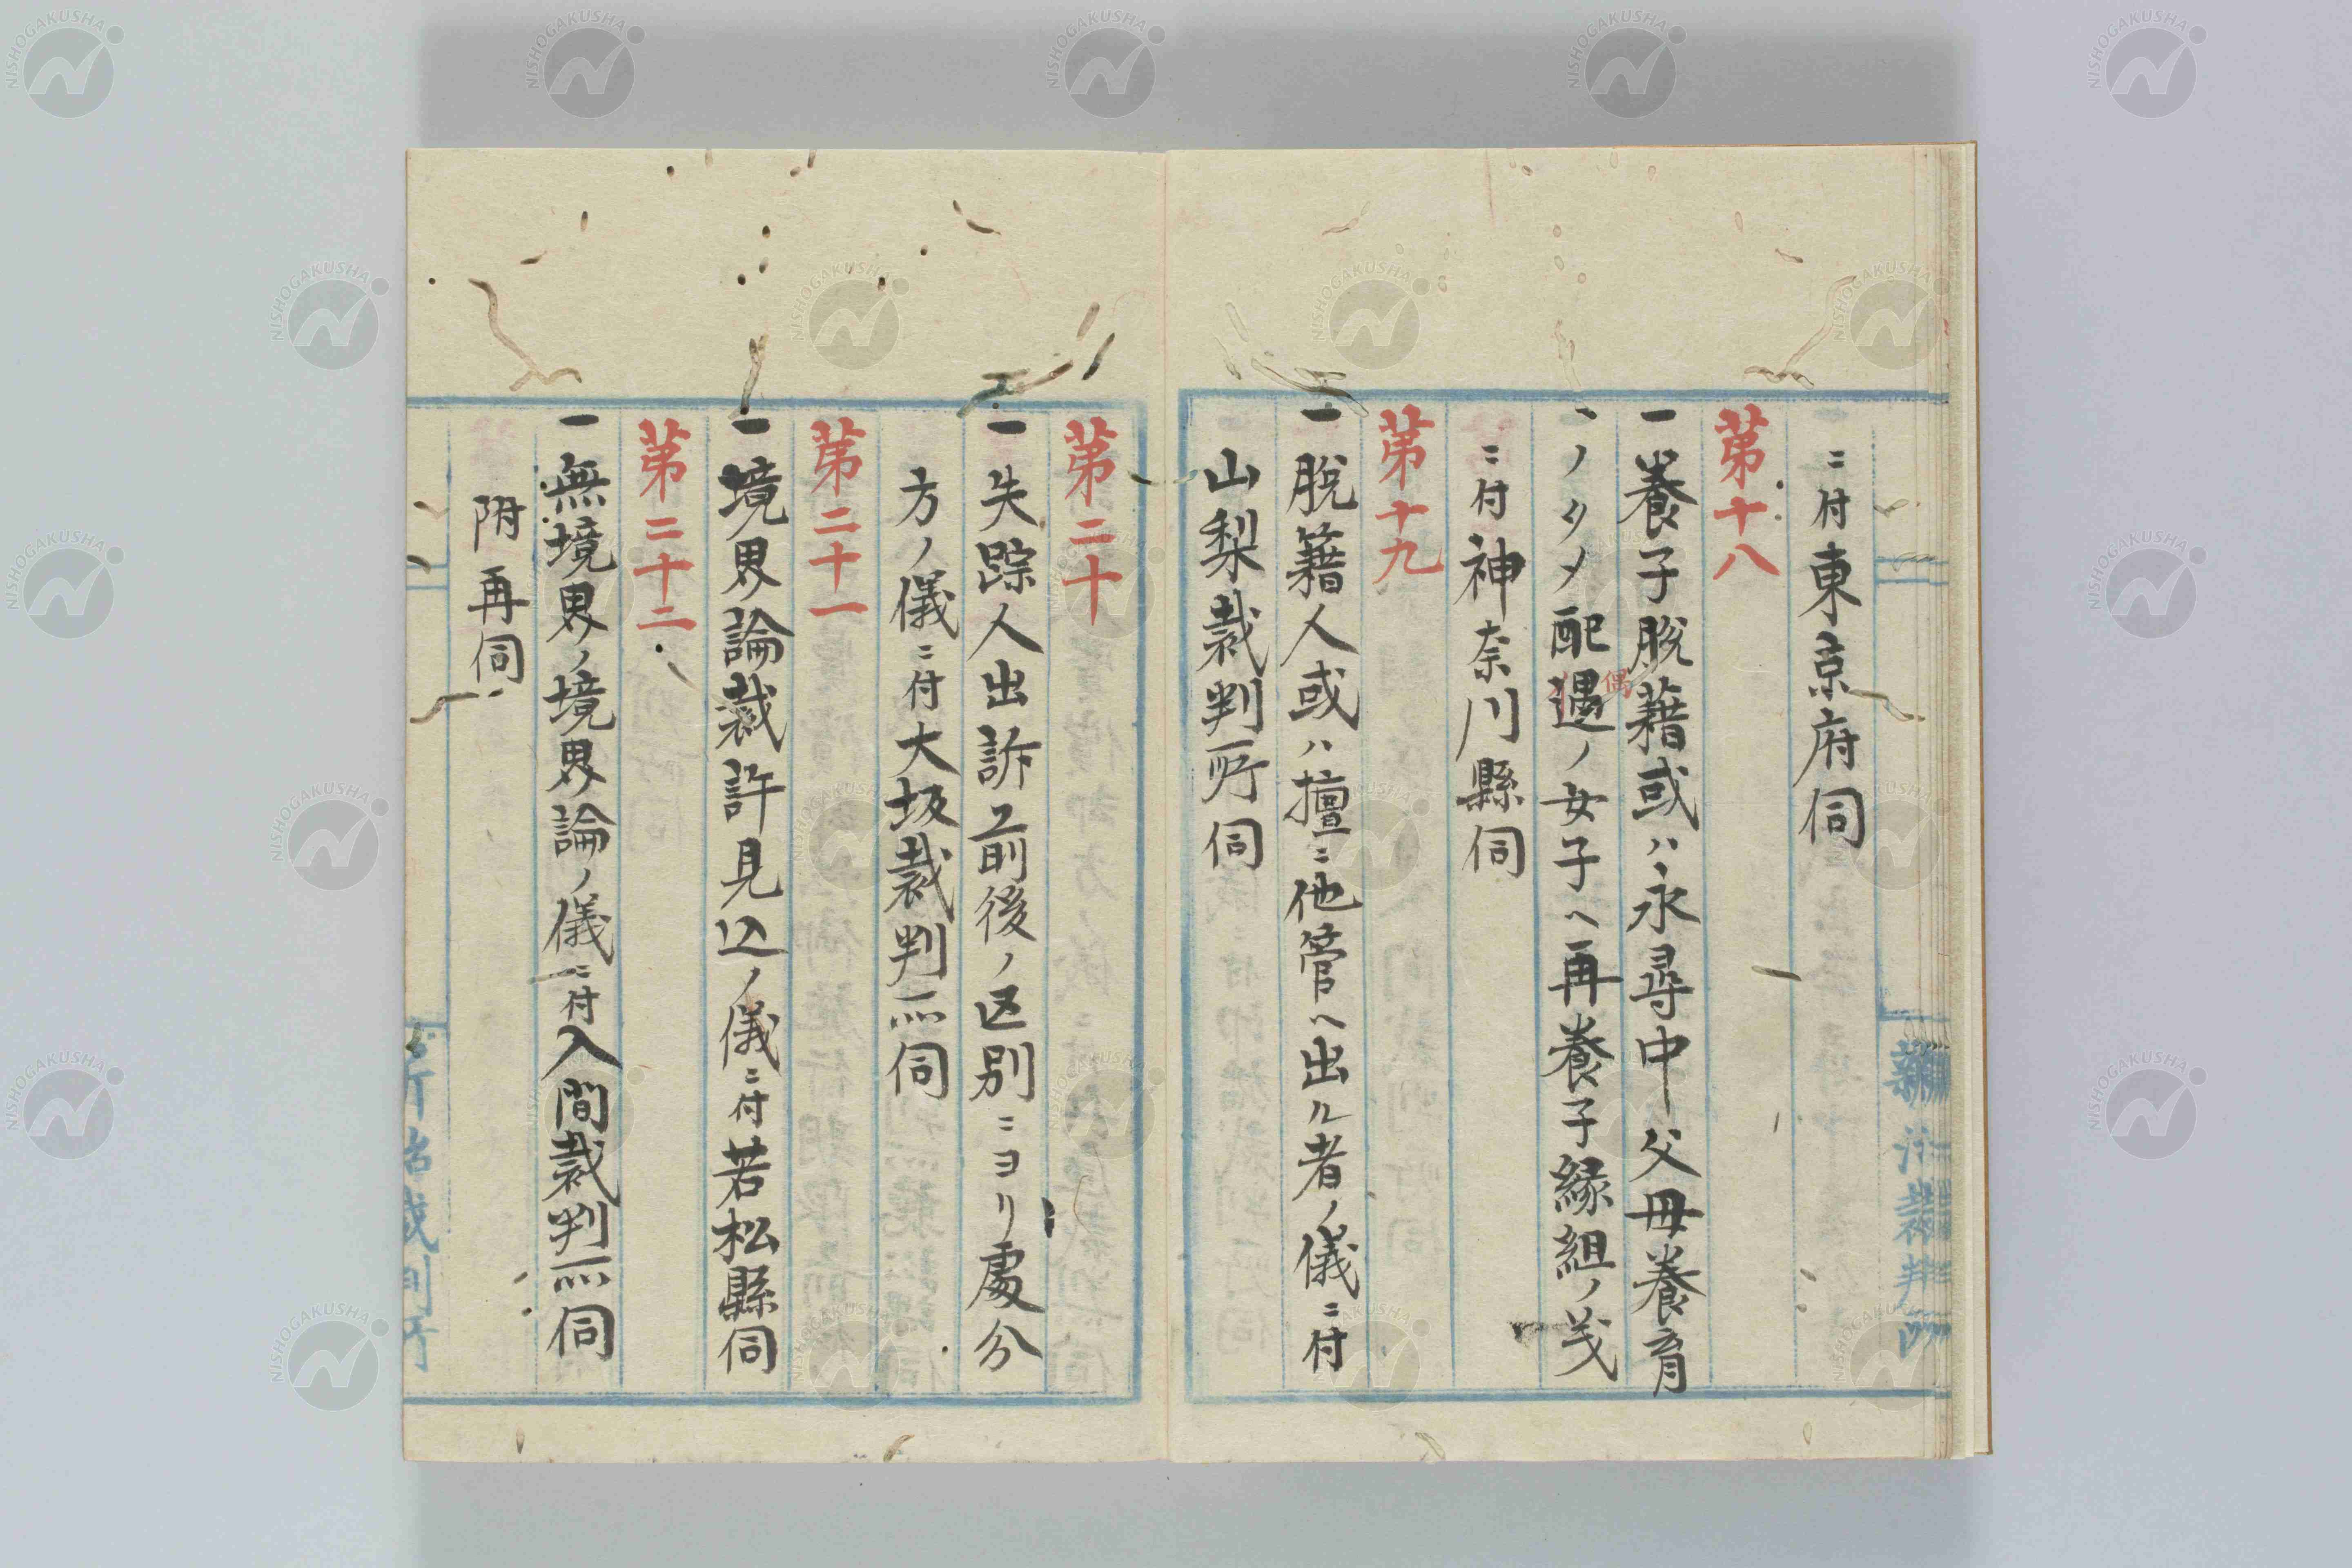 ニ付東京府伺
第十八
一養子脱藉或ハ永尋中父母養育
ノタメ配遇ノ女子ヘ再養子縁組ノ義
偶
ニ付神奈川縣伺
第十九
一脱籍人或ハ擅ニ他管ヘ出ル者ノ儀ニ付
山梨裁判所伺
第二十
一失踪人出訴前後ノ区別ニヨリ處分
方ノ儀ニ付大坂裁判所伺
第二十一
一境界論裁許見込ノ儀ニ付若松縣伺
第二十二
一無境界ノ境界論ノ儀ニ付入間裁判所伺
附再伺
NISHOGAKUSHA